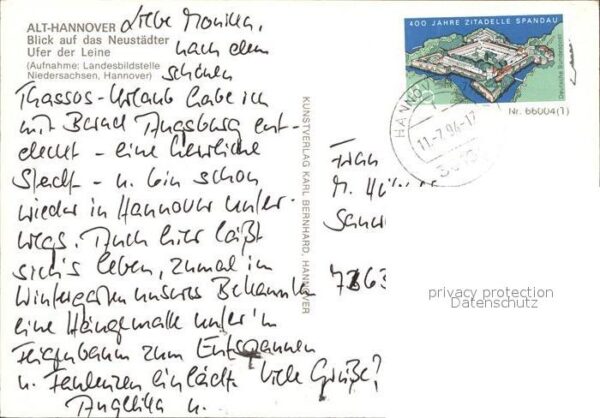 ALT-HANNOVER
Blick auf das Neustädter
Ufer der Leine
(Aufnahme: Landesbildstelle
Niedersachsen, Hannover)
Liebe Monika,
nach dem
schönen
Thassos-Urlaub habe ich
mit Bernd Augsburg ent-
deckt - eine herrliche
Stadt - u. bin schon
wieder in Hannover unter-
wegs. Auch hier läßt
sich's leben, zumal im
Wintergarten unserer Bekannten
eine Hängematte unter'm
Feigenbaum zum Entspannen
u. Faulenzen einlädt. Viele Grüße!
Angelika u.
KUNSTVERLAG KARL BERNHARD, HANNOVER
400 JAHRE ZITADELLE SPANDAU
Deutsche Bundespost
Nr. 66004(1)
HANNOV
11.-7.94-17
Frau
M.
7863
privacy protection
Datenschutz